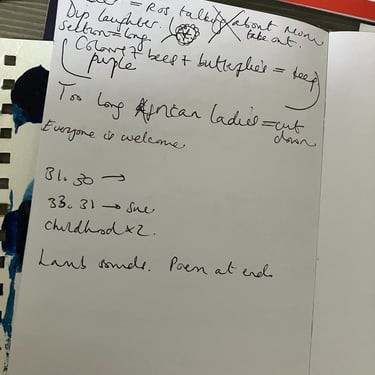 = Ros talks about mum
Dip laughter. take out.
section = long.
Colours + bees + butterflies = keep
purple
Too long African ladies = cut
down
Everyone is welcome
31.30 →
33.31 → Sue
childhood x 2.
Lamb sounds. Poem at end